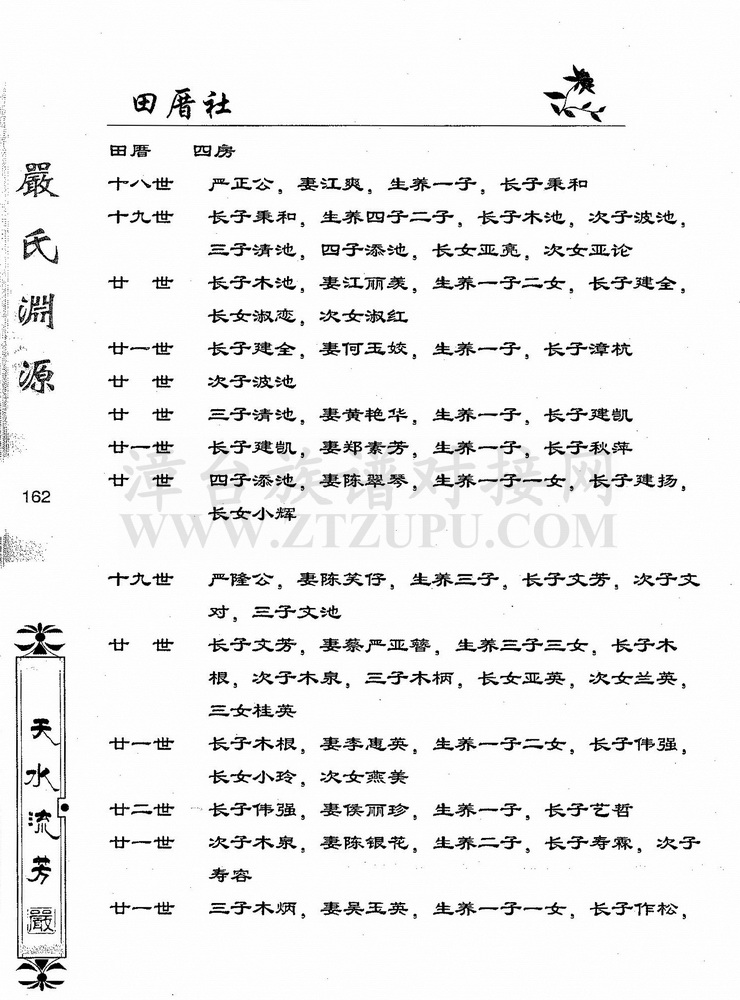 田厝社
田厝 四房
十八世 严正公，妻江爽，生养一子，长子秉和
十九世 长子秉和，生养四子二子，长子木池，次子波池，
三子清池，四子添池，长女亚亮，次女亚论
廿 世 长子木池，妻江丽羡，生养一子二女，长子建全，
长女淑恋，次女淑红
廿一世 长子建全，妻何玉姣，生养一子，长子漳杭
廿 世 次子波池
廿 世 三子清池，妻黄艳华，生养一子，长子建凯
廿一世 长子建凯，妻郑素芳，生养一子，长子秋萍
廿 世 四子添池，妻陈翠琴，生养一子一女，长子建扬，
长女小辉
十九世 严隆公，妻陈笑仔，生养三子，长子文芳，次子文
对，三子文池
廿 世 长子文芳，妻蔡严亚簪，生养三子三女，长子木
根，次子木泉，三子木柄，长女亚英，次女兰英，
三女桂英
廿一世 长子木根，妻李惠英，生养一子二女，长子伟强，
长女小玲，次女燕美
廿二世 长子伟强，妻侯丽珍，生养一子，长子艺哲
廿一世 次子木泉，妻陈银花，生养二子，长子寿霖，次子
寿容
廿一世 三子木炳，妻吴玉英，生养一子一女，长子作松，
嚴氏淵源
162
天水流芳
嚴
漳台族谱对接网
WWW.ZTZUPU.COM